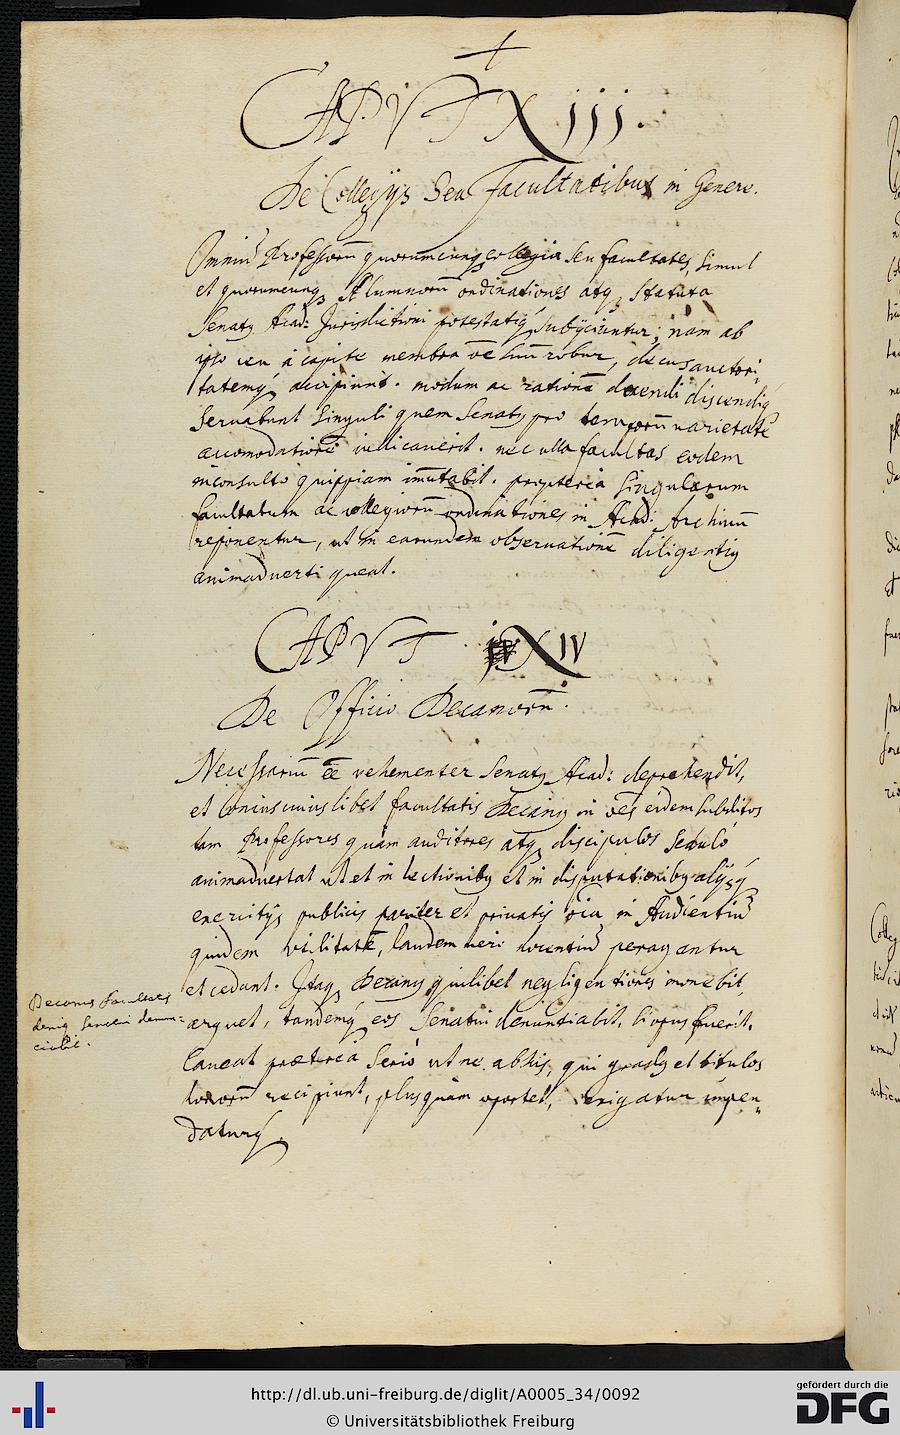 CAPVT Xiij.
De Collegijs Seu Facultatibus in Genere.
Omniũ Professorũ quorumcunq; collegia seu facultates, simul
et quorumcunq; Alumnorũ ordinationes atq; Statuta
Senatq Acad: Jurisdictioni potestatiq; subijciuntur; nam ab
ipso ceu a capite membra oẽ suũ robur, decus auctori,,
tatemq; accipiunt. modum ac rationẽ docendi discendiq;
Seruabunt singuli quem Senatq pro temporũ varietatẽ
accomodatiorẽ iudicauerit. nec ulla facultas eodem
inconsulto quippiam im̃utabit. propterea singularum
facultatum ac collegiorũ ordinationes in Acad: Archiuũ
reponentur, ut in earundem obseruationẽ diligentiq
animaduerti queat.
CAPVT XIV
De Officio Decanorũ.
Necessariũ eẽ vehementer Senatq Acad: deprehendit,
et cuiuslibet facultatis Decanq in oẽs eidem subditos
tam Professores quàm auditores atq; discipulos sedulò
animaduertat ut et in lectionibq et in disputationibq alijsq;
exercitijs publicis pariter et priuatis oĩa in Audientiũ
quidem vtilitatẽ, laudem uerò docentiũ peragantur
et cedant. Itaq; Decanq quilibet negligentiores monebit,
arguet, tandemq; eos Senatui denuntiabit, si opus fuerit.
Caueat præterea seriò ut ne ab his, qui gradq et titulos
honorũ recipiunt, plusquàm oportet, exigatur impen,,
daturq;.
Decanus Facultatis
deniq Senatui denun:
ciabit.
http://dl.ub.uni-freiburg.de/diglit/A0005_34/0092
© Universitätsbibliothek Freiburg
gefördert durch die
DFG